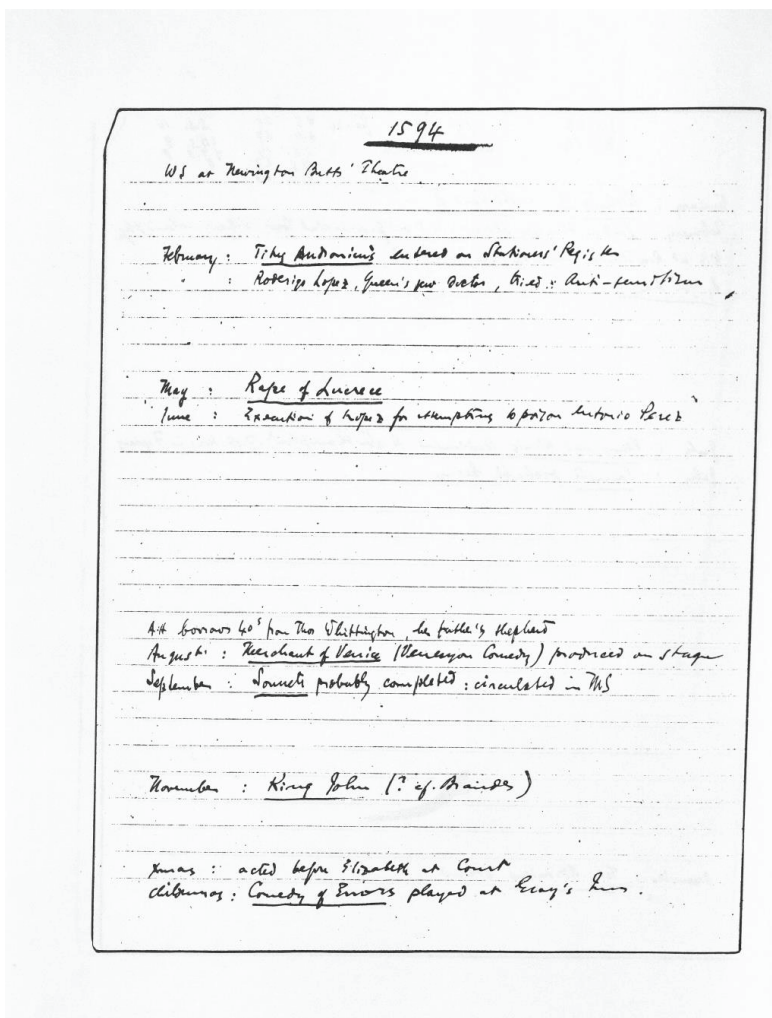 1594
WS at Newington Butts' Theatre
February : Titus Andronicus entered on Stationers' Register
" : Roderigo Lopez, Queen's Jew Doctor, tried : Anti-semitism
May : Rape of Lucrece
June : Execution of Lopez for attempting to poison Antonio Perez
AH borrows 40s from Thos Whittington, her father's shepherd
August : Merchant of Venice (Venesyon Comedy) produced on stage
September : Sonnets probably completed : circulated in MS
November : King John (? cf. Brandes)
Xmas : acted before Elizabeth at Court
: Comedy of Errors played at Gray's Inn.